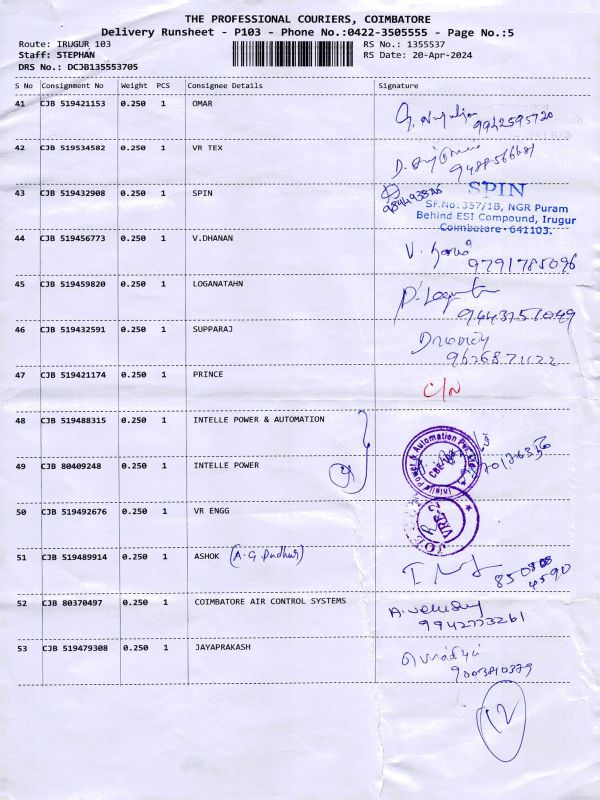 THE PROFESSIONAL COURIERS, COIMBATORE
Delivery Runsheet - P103 - Phone No.:0422-3505555 - Page No.:5
Route: IRUGUR 103 RS No.: 1355537
Staff: STEPHAN RS Date: 20-Apr-2024
DRS No.: DCJB135553705
S No Consignment No Weight PCS Consignee Details Signature
41 CJB 519421153 0.250 1 OMAR
9942595720
42 CJB 519534582 0.250 1 VR TEX
43 CJB 519432908 0.250 1 SPIN
SPIN
SF.No: 357/1B, NGR Puram
Behind ESI Compound, Irugur
Coimbatore - 641103.
44 CJB 519456773 0.250 1 V.DHANAN
9791785096
45 CJB 519459820 0.250 1 LOGANATAHN
9443751049
46 CJB 519432591 0.250 1 SUPPARAJ
9626871122
47 CJB 519421174 0.250 1 PRINCE
C/N
48 CJB 519488315 0.250 1 INTELLE POWER & AUTOMATION
49 CJB 80409248 0.250 1 INTELLE POWER
50 CJB 519492676 0.250 1 VR ENGG
51 CJB 519489914 0.250 1 ASHOK (A-G Pudhur)
52 CJB 80370497 0.250 1 COIMBATORE AIR CONTROL SYSTEMS
9942773261
53 CJB 519479308 0.250 1 JAYAPRAKASH
9003810379
12